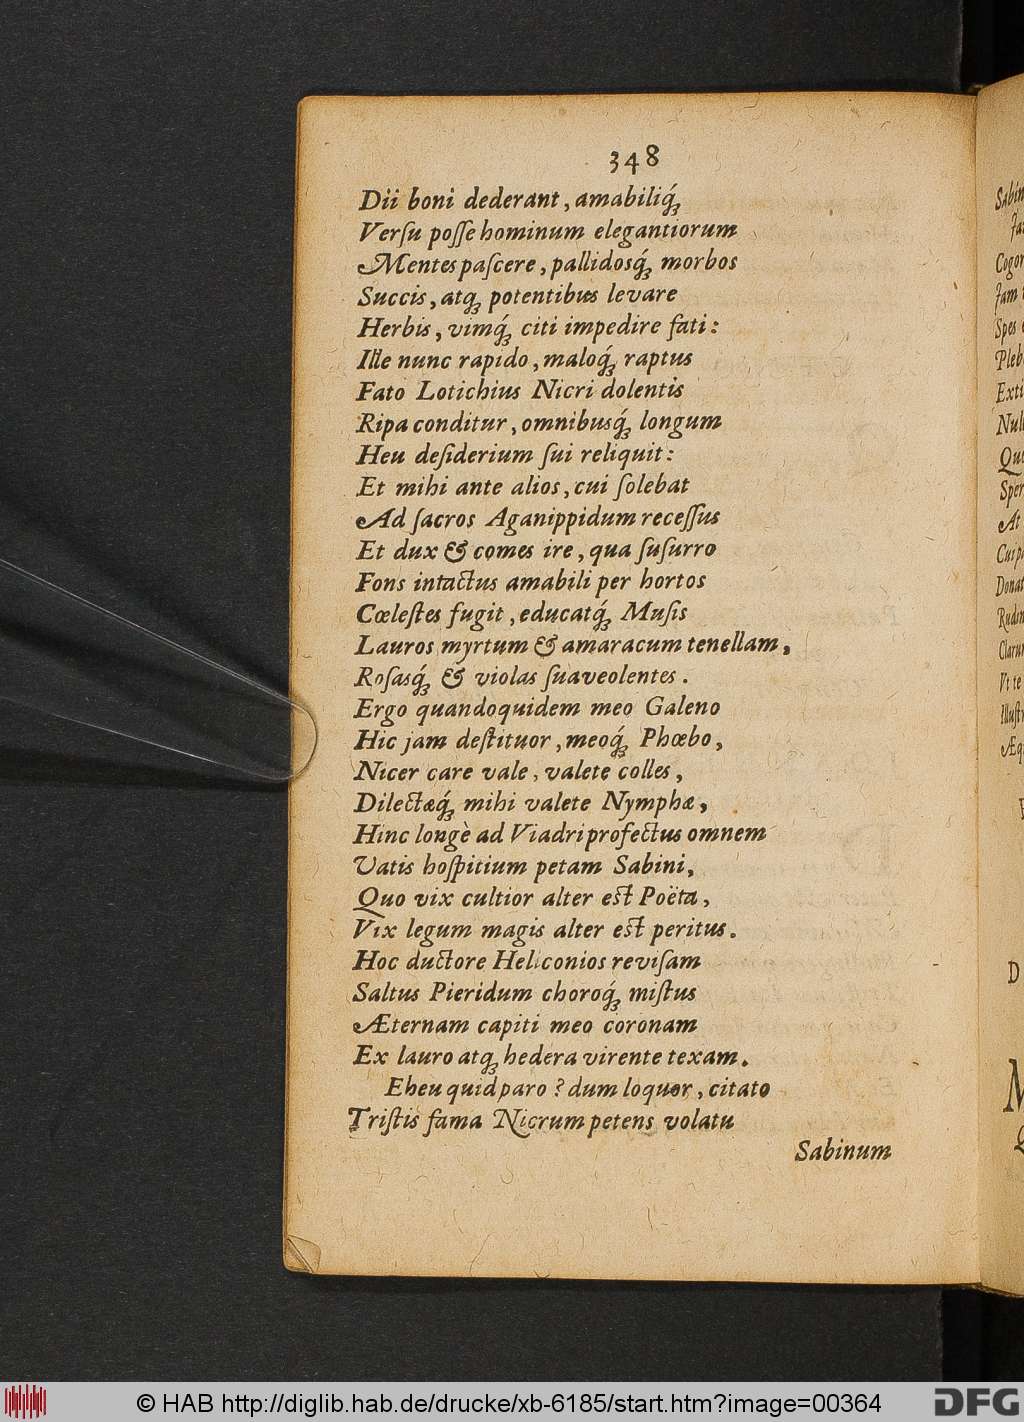 348
Dii boni dederant, amabiliq́ꝫ
Verſu poſſe hominum elegantiorum
Mentes paſcere, pallidosq́ꝫ morbos
Succis, atqꝫ potentibus levare
Herbis, vimq́ꝫ citi impedire fati:
Ille nunc rapido, maloq́ꝫ raptus
Fato Lotichius Nicri dolentis
Ripa conditur, omnibusq́ꝫ longum
Heu deſiderium ſui reliquit:
Et mihi ante alios, cui ſolebat
Ad ſacros Aganippidum receſſus
Et dux & comes ire, qua ſuſurro
Fons intactus amabili per hortos
Cœleſtes fugit, educatq́ꝫ Muſis
Lauros myrtum & amaracum tenellam,
Roſasq́ꝫ & violas ſuaveolentes.
Ergo quandoquidem meo Galeno
Hic jam deſtituor, meoq́ꝫ Phœbo,
Nicer care vale, valete colles,
Dilectæq́ꝫ mihi valete Nymphæ,
Hinc longè ad Viadri profectus omnem
Vatis hoſpitium petam Sabini,
Quo vix cultior alter eſt Poëta,
Vix legum magis alter eſt peritus.
Hoc ductore Heliconios reviſam
Saltus Pieridum choroq́ꝫ miſtus
Æternam capiti meo coronam
Ex lauro atqꝫ hedera virente texam.
Eheu quid paro? dum loquor, citato
Triſtis fama Nicrum petens volatu
Sabinum
© HAB http://diglib.hab.de/drucke/xb-6185/start.htm?image=00364
DFG